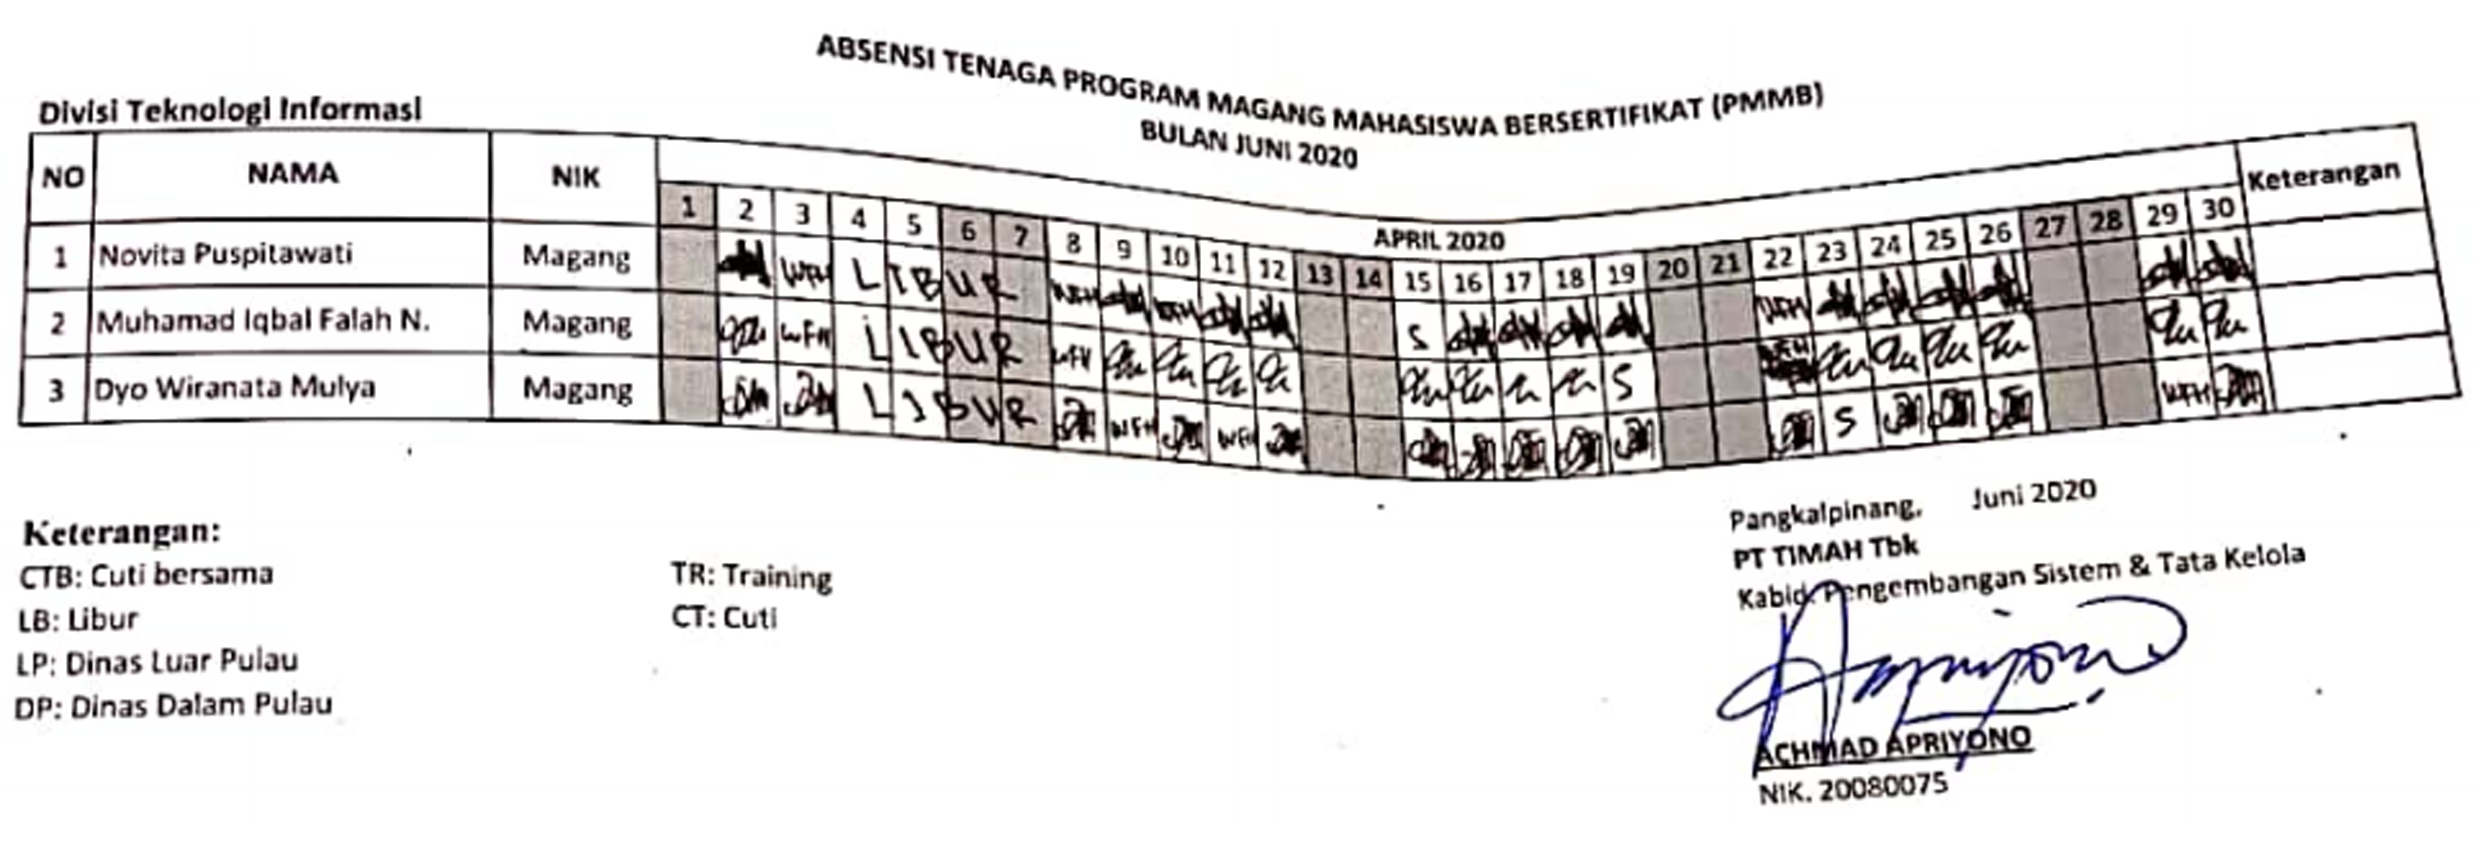 ABSENSI TENAGA PROGRAM MAGANG MAHASISWA BERSERTIFIKAT (PMMB)
BULAN JUNI 2020
Divisi Teknologi Informasi
NO NAMA NIK APRIL 2020 Keterangan
1 2 3 4 5 6 7 8 9 10 11 12 13 14 15 16 17 18 19 20 21 22 23 24 25 26 27 28 29 30
1 Novita Puspitawati Magang WFH LIBUR WFH WFH S WFH
2 Muhamad Iqbal Falah N. Magang WFH LIBUR WFH S
3 Dyo Wiranata Mulya Magang LIBUR WFH WFH S WFH
Keterangan:
CTB: Cuti bersama
LB: Libur
LP: Dinas Luar Pulau
DP: Dinas Dalam Pulau
TR: Training
CT: Cuti
Pangkalpinang, Juni 2020
PT TIMAH Tbk
Kabid. Pengembangan Sistem & Tata Kelola
ACHMAD APRIYONO
NIK. 20080075